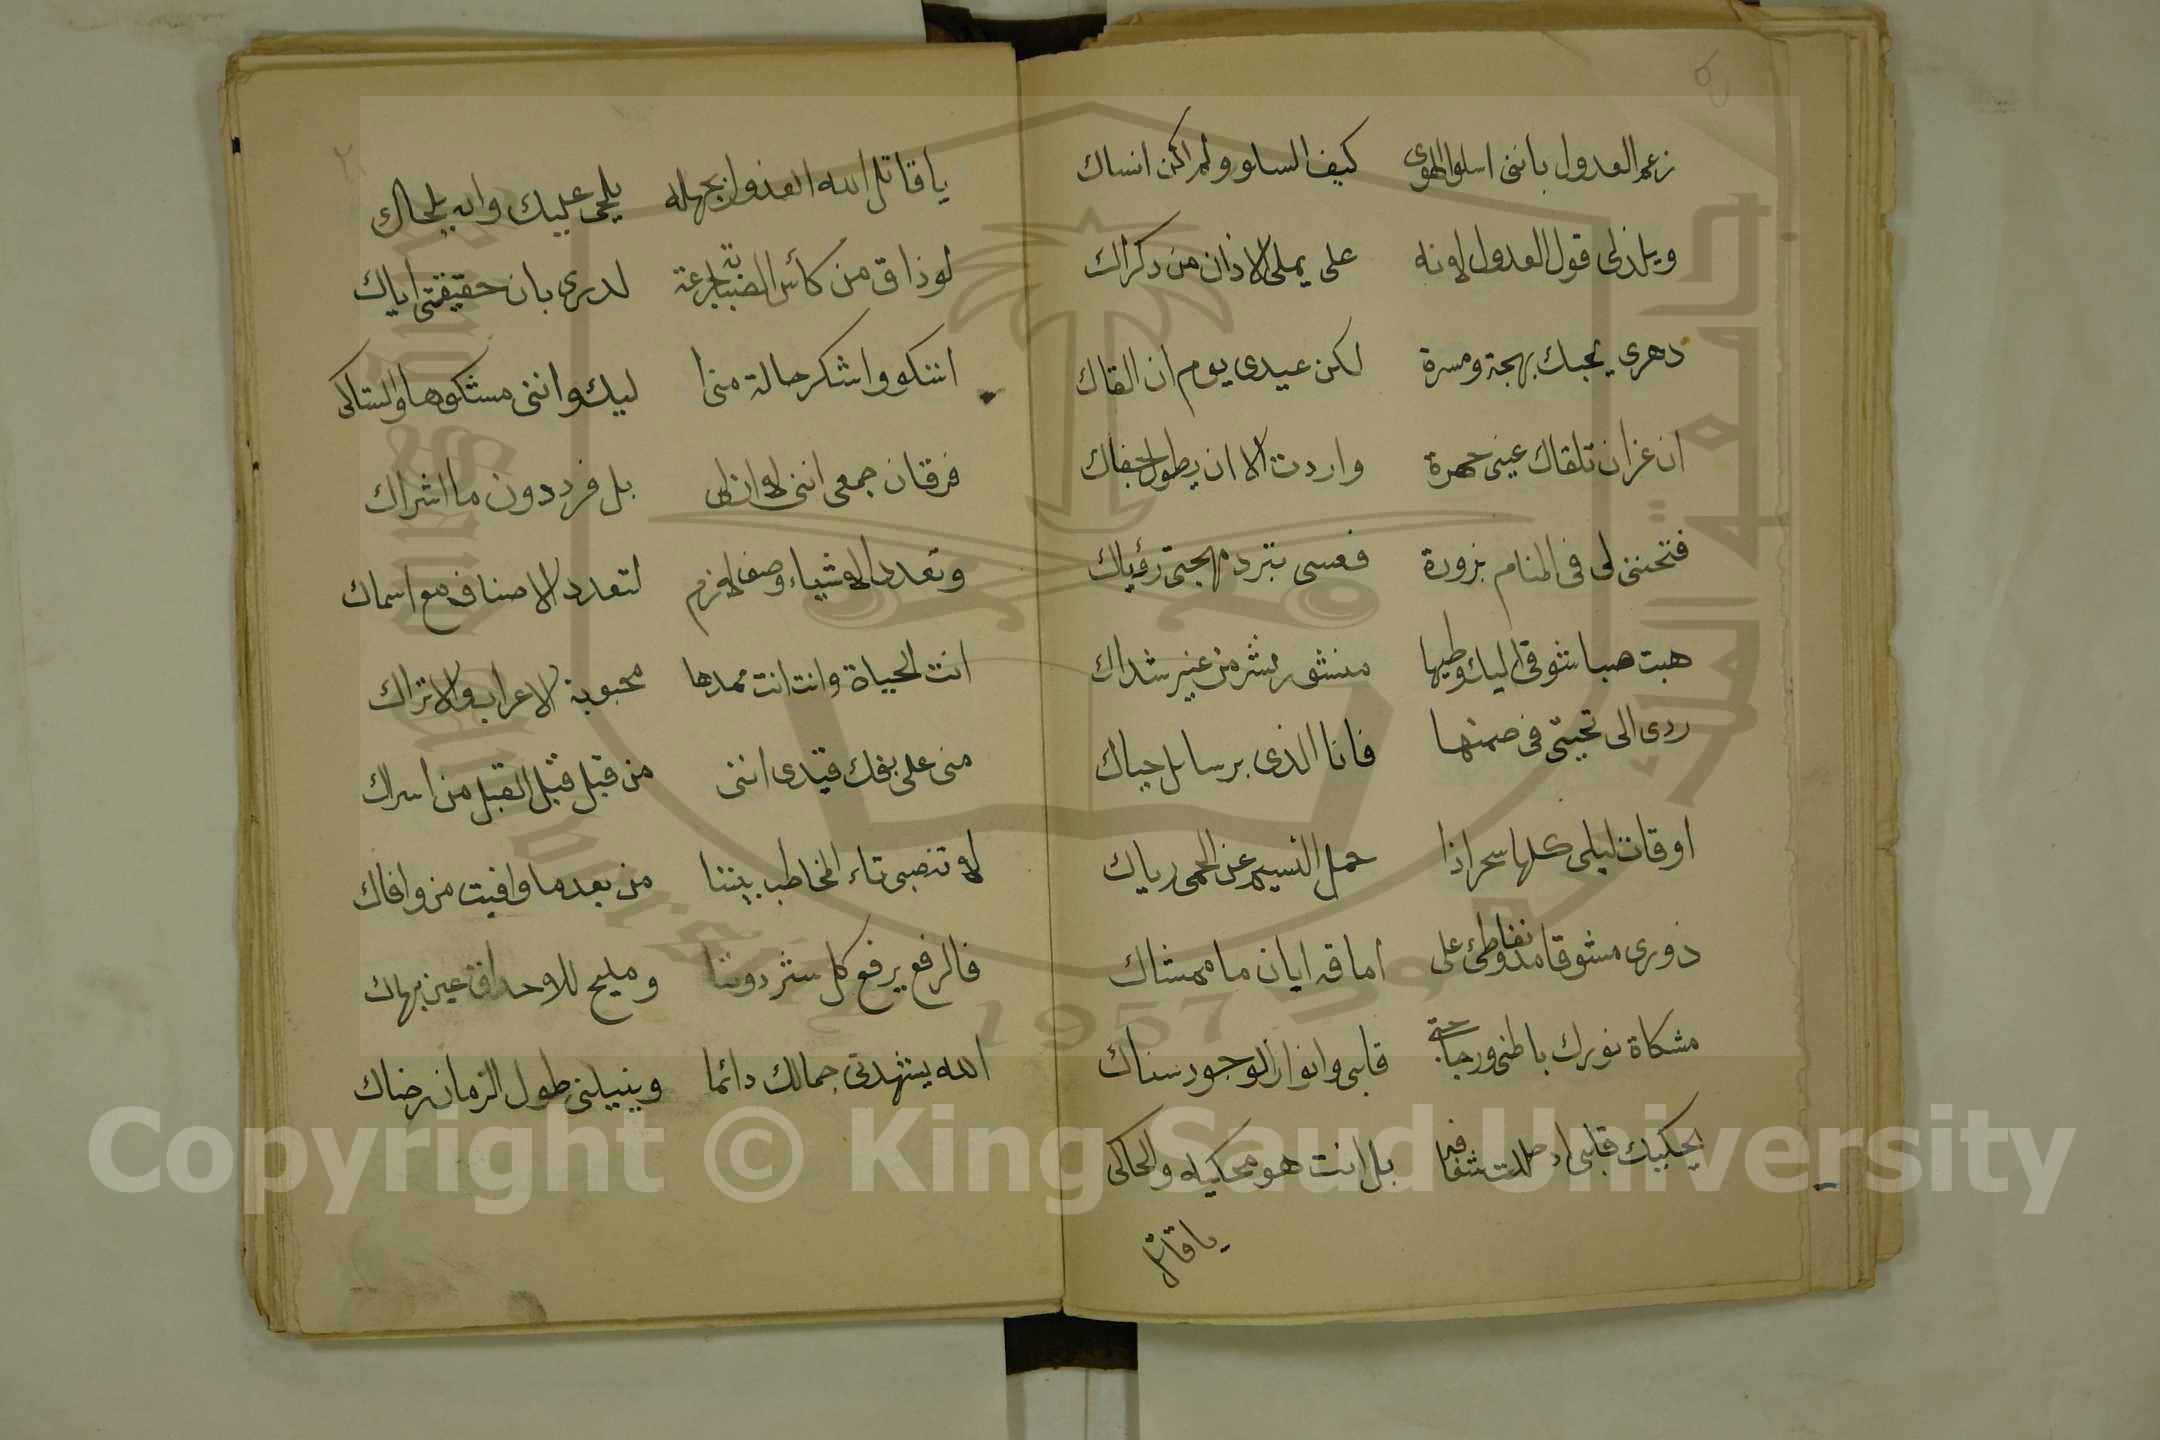 زعم العدول بانني اسلو الهوى كيف السلو ولم اكن انساك
ويلذ لي قول العدول لانه على يملي الاذان من دكراك
دهرى بحبك بهجة ومسرة لكن عيدى يوم ان القاك
ان عز ان تلقاك عيني حسرة واردت الا ان يطول جفاك
فتحنني لى فى المنام بزورة فعسى تبرد مهجتى رؤياك
هبت صبا شوقى اليك وطيها منشور بشر من عبير شداك
ردى الى تحيتى فى ضمنها فانا الذى برسايل حياك
اوقات ليلى كلها سحر اذا حمل النسيم عن الحمى رياك
زورى مشوقا على اماقه ايان ما ممشاك
مشكاة نورك باطنى وزجاجتى قلبى وانوار الوجود سناك
يحكيك قلبى اد شفافه بل انت هو محكيه والحاكى
يا قاتل
يا قاتل الله العذول بجهله يلحى عليك وانه يلحاك
لو ذاق من كأس الصبابة جرعة لدرى بان حقيقتى اياك
اشكو واشكر حالة منى ا ليك واننى مشكوها والشاكى
فرقان جمعى اننى بل فرد دون ما اشراك
وتعدد الاشياء وصف لازم لتعدد الاصناف مع اسماك
انت الحياة وانت انت ممدها محبوبة الاعراب والاتراك
منى على بفك قيدى اننى من قبل قبل القبل من اسراك
لا تنصبى تاء المخاطب بيننا من بعد ما وافيت من وافاك
فالرفع يرفع كل ستر دوننا ومليح للاحداق عين بهاك
الله يشهدنى جمالك دائما وينيلنى طول الزمان رضاك
Copyright © King Saud University
1957